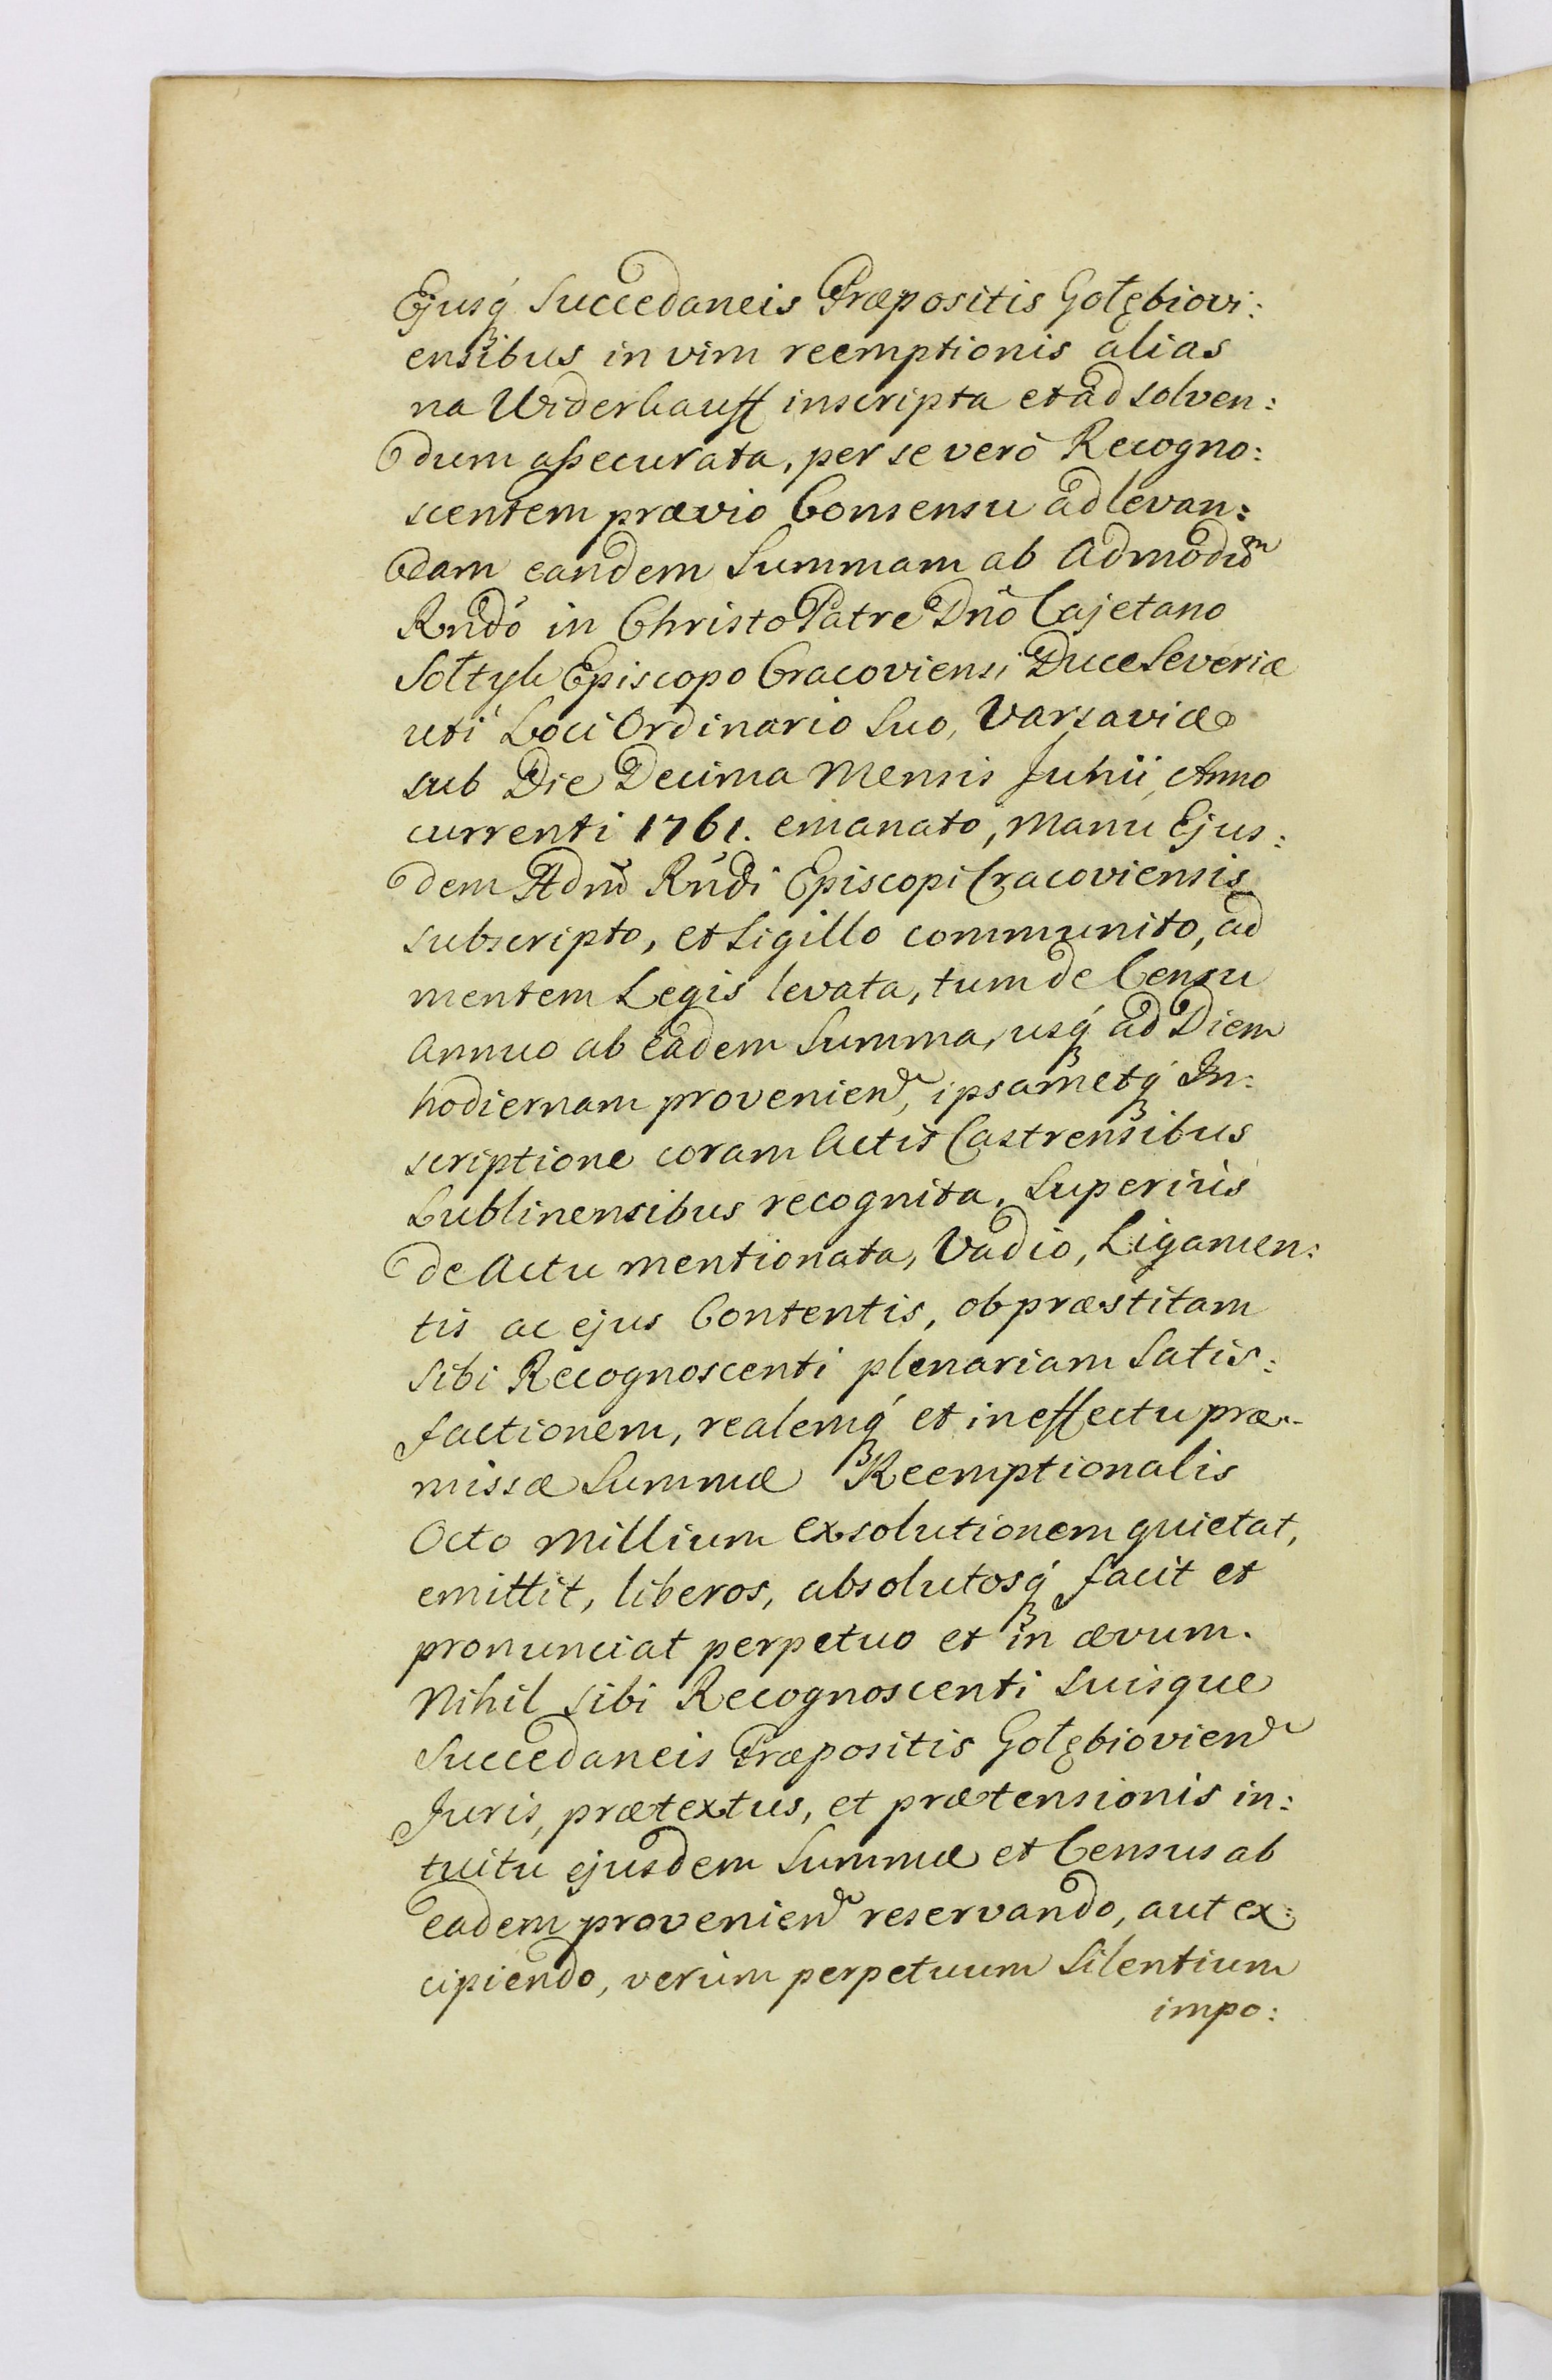 Ejusq́ Succedaneis Præpositis Gołębiovi:
ensibus in vim reemptionis alias
na Widerkauff inscripta et ad solven:
dum assecurata, per se verò Recogno:
scentem prævio Consensu ad levan:
dam eandem Summam ab Admodũm
Rńdó in Christo Patre Dńo Cajetano
Sołtyk Episcopo Cracoviensi Duce Severiæ
uti Loci Ordinario Suo, Varsaviæ
sub Die Decima Mensis Junii, Anno
currenti 1761. emanato, Manu Ejus:
dem Adm̃ Rńdi Episcopi Cracoviensis
subscripto, et Sigillo communito, ad
mentem Legis levata, tum de Censu
annuo ab eadem Summa, usq́ ad Diem
hodiernam provenien̄, ipsametq́ In:
scriptione coram Actis Castrensibus
Lublinensibus recognita, Superiùs
de Actu mentionata, Vadio, Ligamen:
tis ac ejus Contentis, ob præstitam
sibi Recognoscenti plenariam Satis:
factionem, realemq́ et in effectu præ:
missæ Summæ Reemptionalis
Octo Millium exsolutionem quietat,
emittit, liberos, absolutosq́ facit et
pronunciat perpetuo et in ævum.
Nihil sibi Recognoscenti suisque
Succedaneis Præpositis Gołębiovien̄
Juris, prætextus, et prætensionis in:
tuitu ejusdem Summæ et Census ab
eadem provenien̄ reservando, aut ex:
cipiendo, verùm perpetuum Silentium
impo: